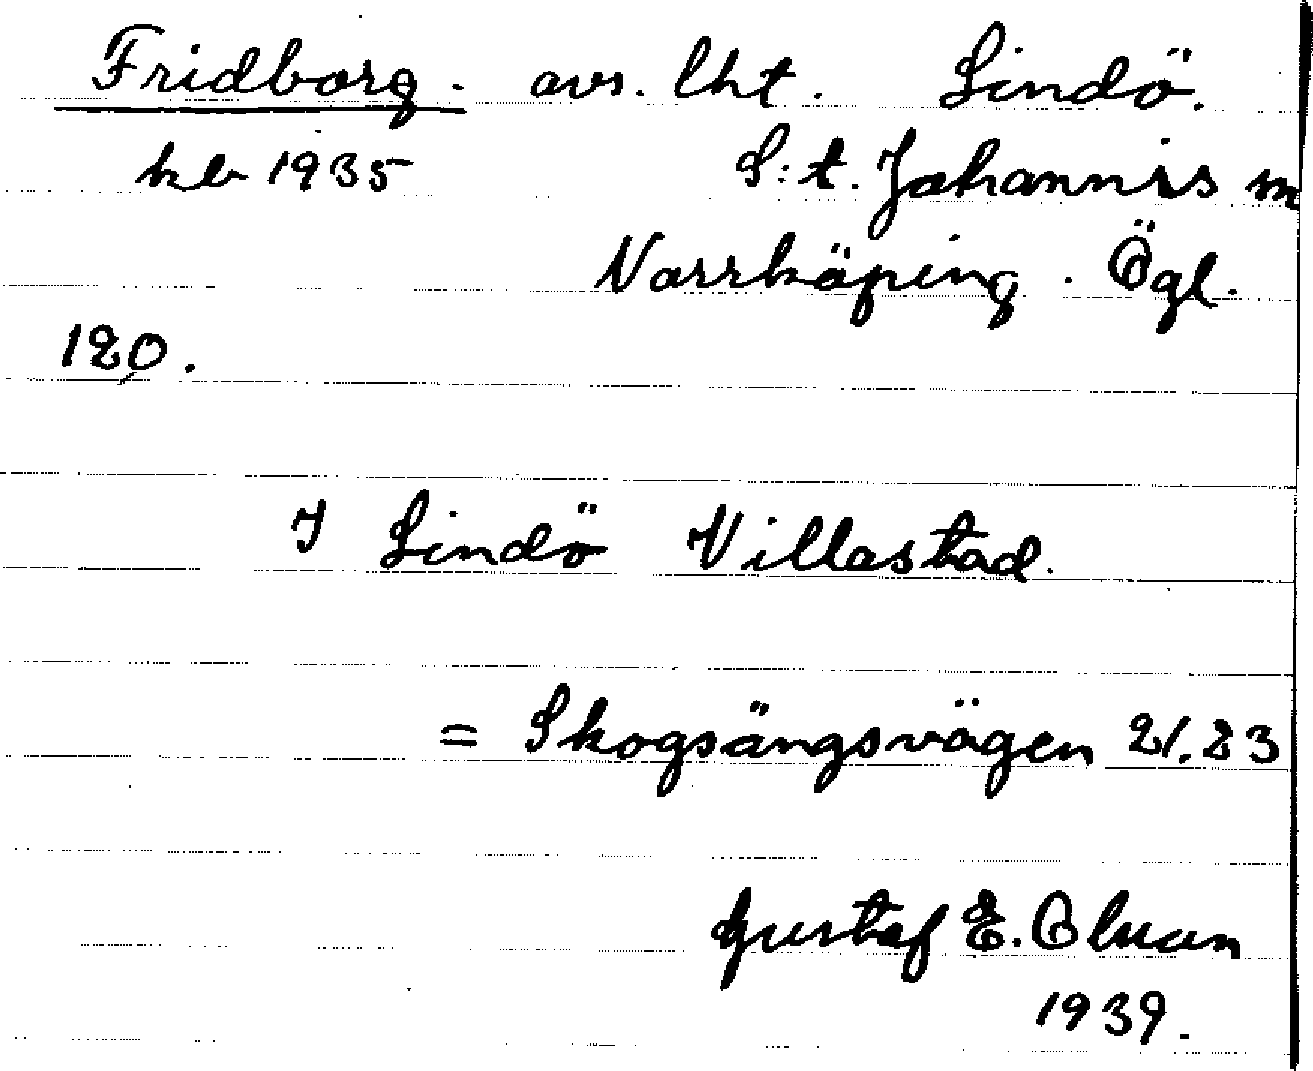 Fridborg. avs. lht. Lindö.
kb 1935 S:t. Johannis sn
Norrköping. Ögl.
120.
I Lindö Villastad.
= Skogsängsvägen 21.23
Gustaf E. Olsson
1939.